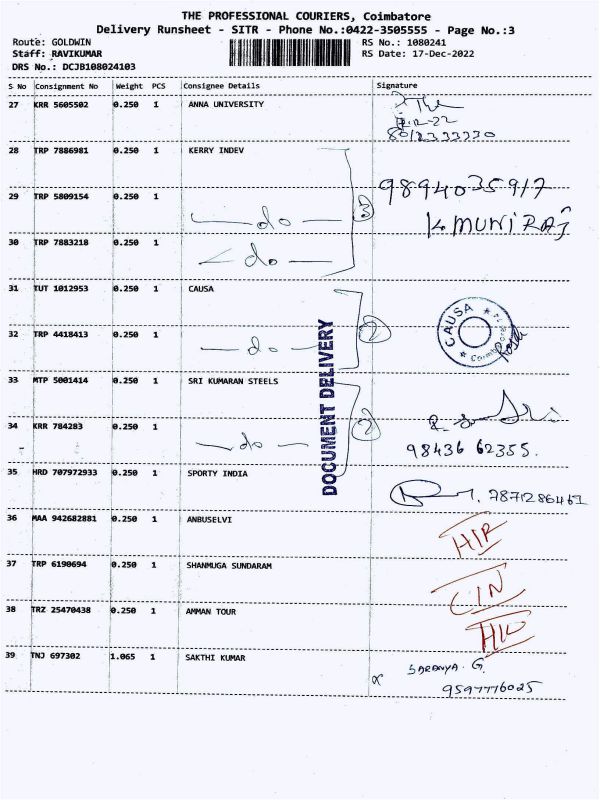 THE PROFESSIONAL COURIERS, Coimbatore
Delivery Runsheet - SITR - Phone No.:0422-3505555 - Page No.:3
Route: GOLDWIN RS No.: 1080241
Staff: RAVIKUMAR RS Date: 17-Dec-2022
DRS No.: DCJB108024103
S No Consignment No Weight PCS Consignee Details Signature
27 KRR 5605502 0.250 1 ANNA UNIVERSITY
28 TRP 7886981 0.250 1 KERRY INDEV
9894035917
29 TRP 5809154 0.250 1 — do — 3
K. MUNIRAJ
30 TRP 7883218 0.250 1 — do —
31 TUT 1012953 0.250 1 CAUSA
CAUSA
32 TRP 4418413 0.250 1 — do — 2
DOCUMENT DELIVERY
33 MTP 5001414 0.250 1 SRI KUMARAN STEELS
34 KRR 784283 0.250 1 — do — 2
98436 62355.
35 HRD 707972933 0.250 1 SPORTY INDIA
7871286461
36 MAA 942682881 0.250 1 ANBUSELVI
37 TRP 6190694 0.250 1 SHANMUGA SUNDARAM
CIN
38 TRZ 25470438 0.250 1 AMMAN TOUR
39 TNJ 697302 1.065 1 SAKTHI KUMAR
SARANYA. G.
9597776025